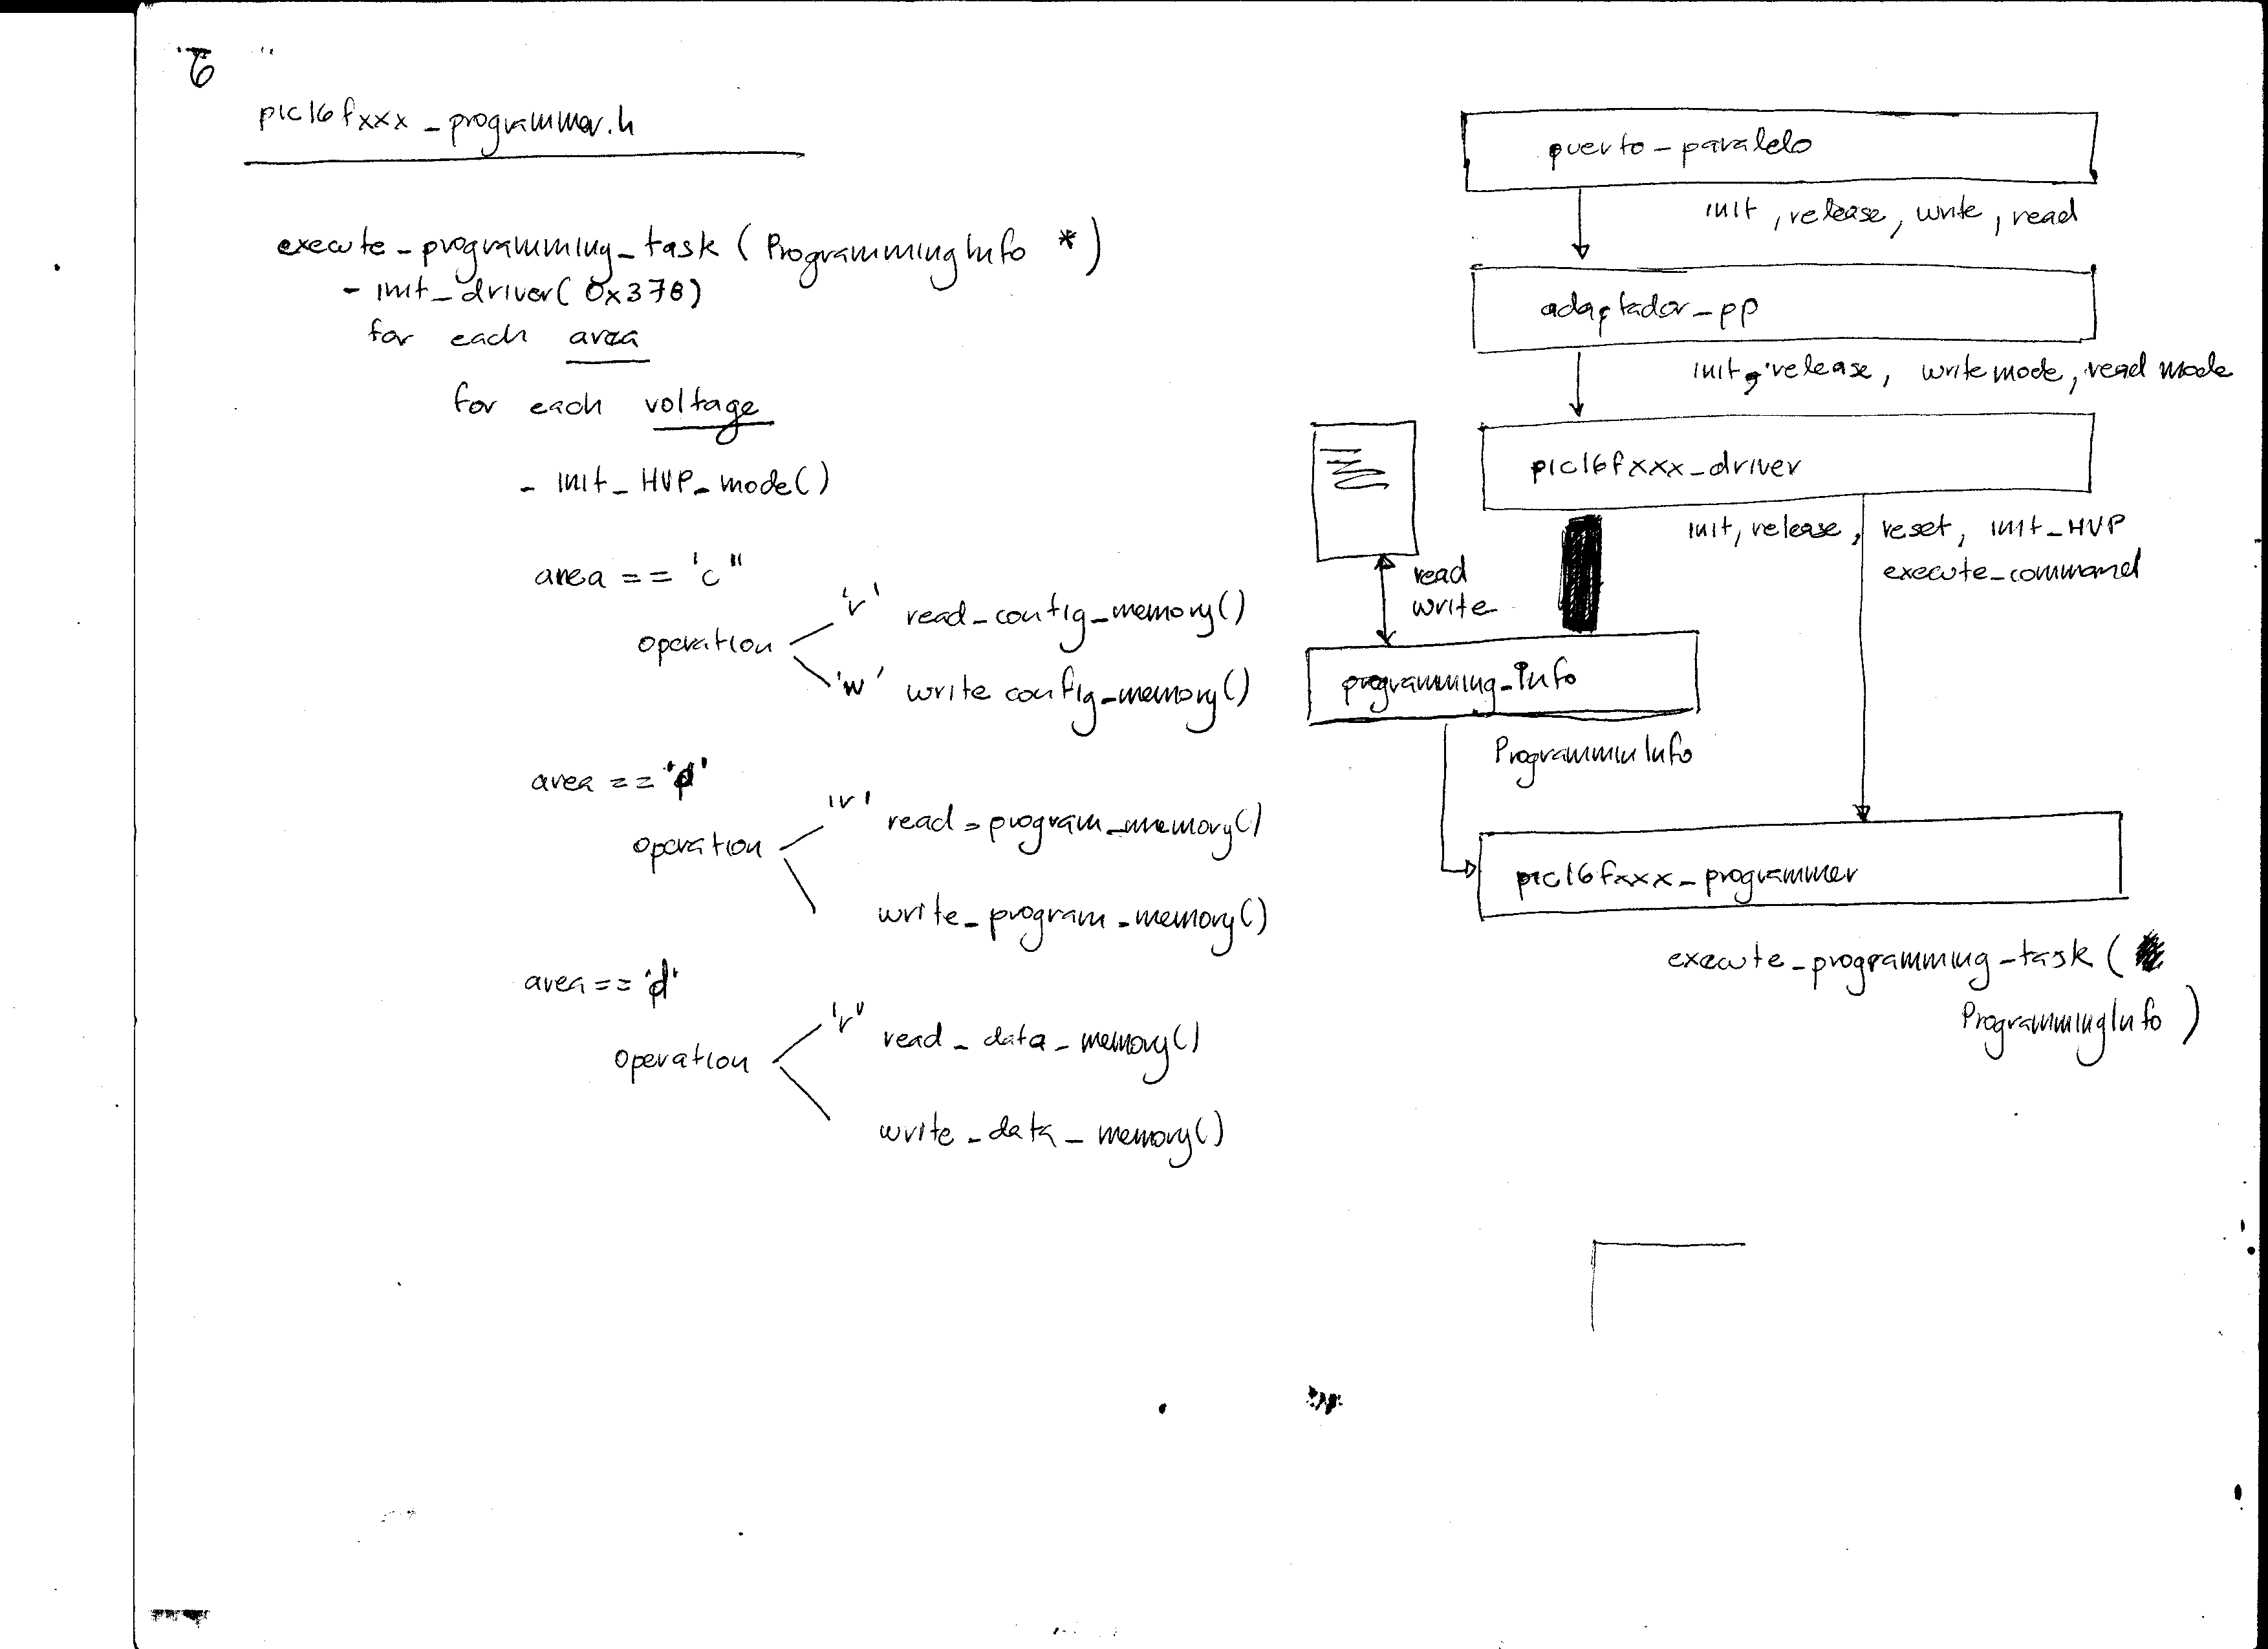 6
pic16fxxx_programmer.h
execute_programming_task (ProgrammingInfo *)
- init_driver( 0x378)
for each area
for each voltage
- init_HVP_mode()
area == 'c"
operation
'r' read_config_memory()
'w' write config_memory()
area == 'p'
operation
'r' read_program_memory()
write_program_memory()
area == 'd'
operation
'r' read_data_memory()
write_data_memory()
puerto_paralelo
init, release, write, read
adaptador_pp
init, release, write mode, read mode
pic16fxxx_driver
init, release, reset, init_HVP
execute_command
read
write
programming_info
ProgramminInfo
pic16fxxx_programmer
execute_programming_task (
ProgrammingInfo )